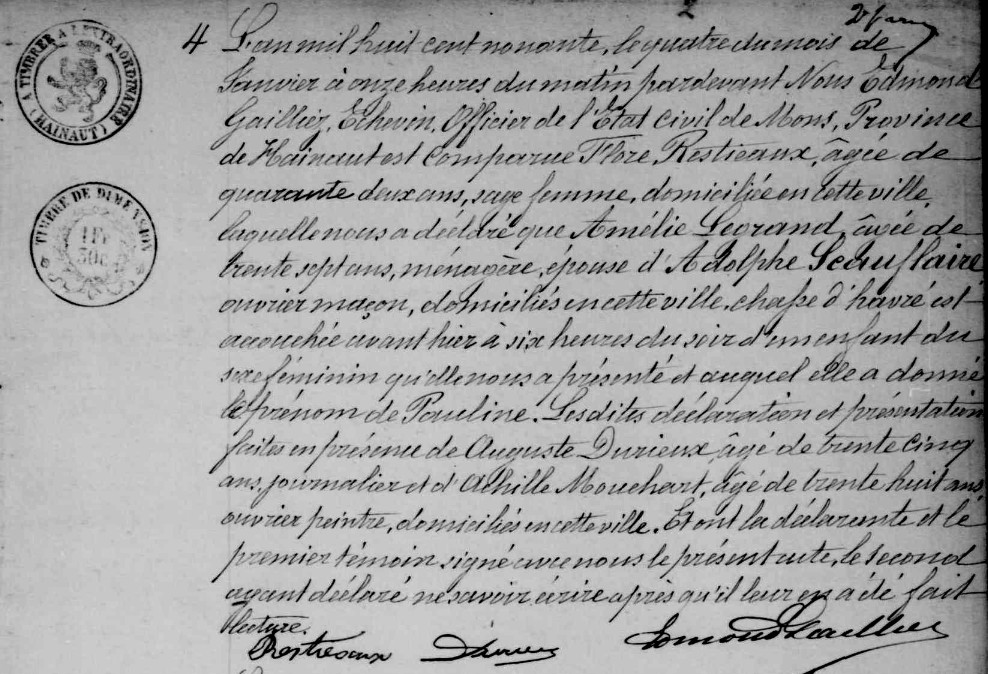 2
A TIMBRER A L'EXTRAORDINAIRE
(HAINAUT)
TIMBRE DE DIMENSION
4 L'an mil huit cent nonante, le quatre du mois de
Janvier à onze heures du matin pardevant Nous Edmond
Gaillier, Echevin, Officier de l'Etat Civil de Mons, Province
de Hainaut est comparue Flore Restieaux, âgée de
quarante deux ans, sage femme, domiciliée en cette ville,
laquelle nous a déclaré que Amélie Legrand, âgée de
trente sept ans, ménagère, épouse d'Adolphe Scauflaire
ouvrier maçon, domiciliés en cette ville, chasse d'havré est
accouchée avant hier à six heures du soir d'un enfant du
sexe féminin qu'elle nous a présenté et auquel elle a donné
le prénom de Pauline. Lesdites déclaration et présentation
faites en présence de Auguste Durieux, âgé de trente cinq
ans, journalier et d'Achille Mouchart, âgé de trente huit ans
ouvrier peintre, domiciliés en cette ville. Et ont la déclarante et le
premier témoin signé avec nous le présent acte, le second
ayant déclaré ne savoir écrire après qu'il leur en a été fait
lecture.
Restieaux Durieux Edmond Gaillier